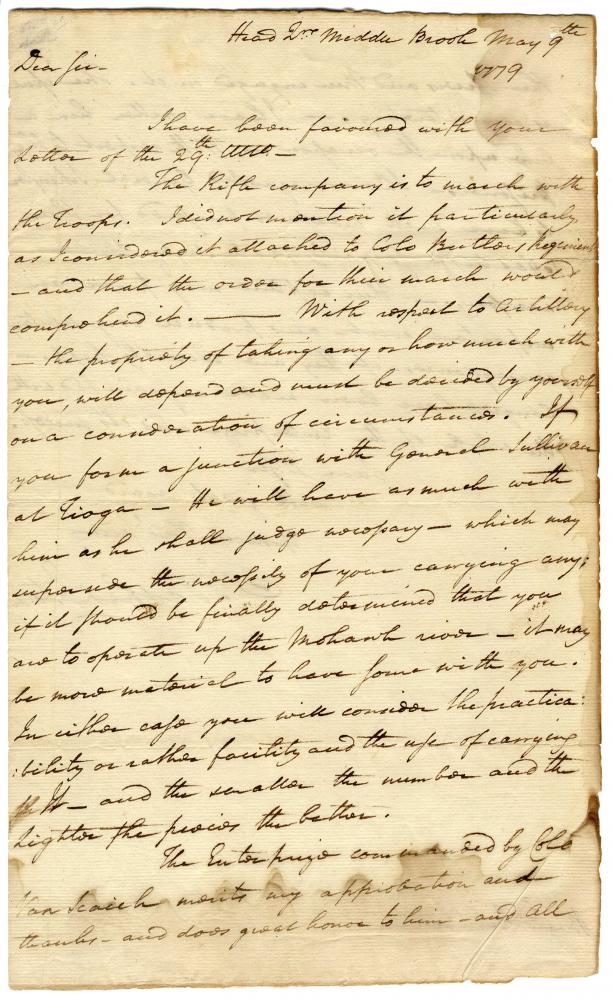 Head Qrs Middle Brook May 9th
1779
Dear Sir—
I have been favoured with your
Letter of the 29th: Ulto.—
The Rifle company is to march with
the Troops. I did not mention it particularly
as I considered it attached to Colo Butlers Regiment
— and that the order for their march would
comprehend it. —— With respect to Artillery
— the propriety of taking any or how much with
you, will depend and must be decided by yourself
on a consideration of circumstances. If
you form a junction with General Sullivan
at Tioga — He will have as much with
him as he shall judge necessary — which may
supersede the necessity of your carrying any;
if it should be finally determined that you
are to operate up the Mohawk river — it may
be more material to have some with you.
In either case you will consider the practica:
:bility or rather facility and the use of carrying
It — and the smaller the number and the
lighter the pieces the better.
The Enterprize commanded by Colo
Van Scaick merits my approbation and
thanks — and does great honor to him — and all